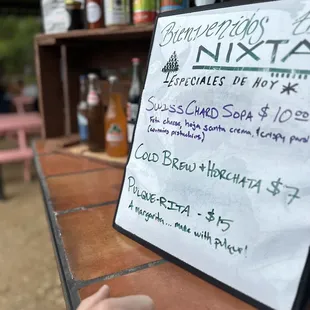 Bienvenidos
NIXTA
ESPECIALES DE HOY *
SWISS CHARD SOPA $10.00
Feta cheese, hoja santa crema, crispy
COLD BREW + HORCHATA $7
PULQUE-RITA - $15
A margarita... made with pulque!